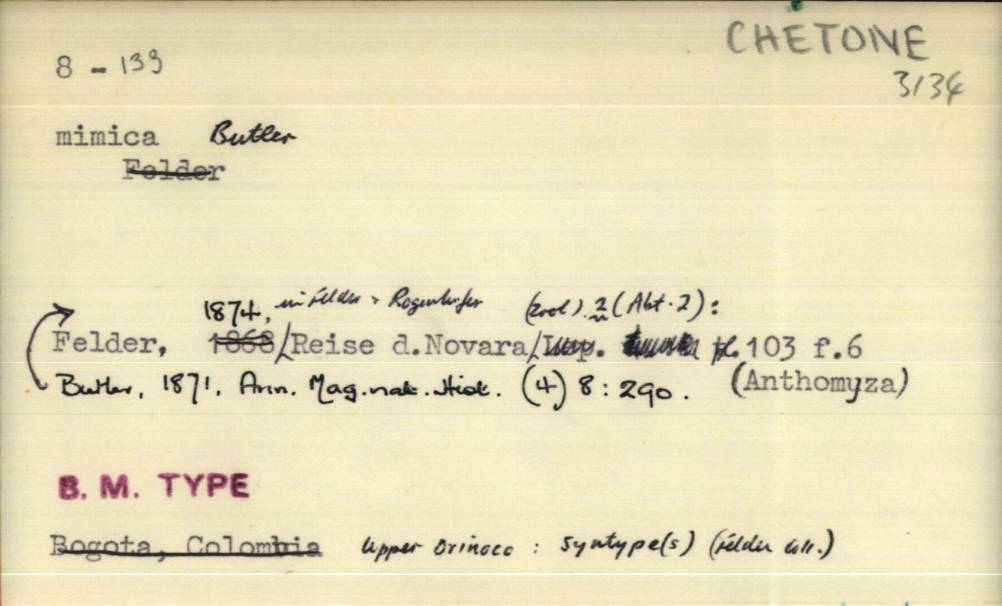 CHETONE
8 - 133
3134
mimica Butler
Felder
1874, in Felder & Rogenhofer (Zool). 2 (Abt. 2):
Felder, 1868 / Reise d.Novara / pl. 103 f.6
Butler, 1871, Ann. Mag. nat. Hist. (4) 8 : 290. (Anthomyza)
B. M. TYPE
Bogota, Colombia Upper Orinoco : Syntype(s) (Felder coll.)